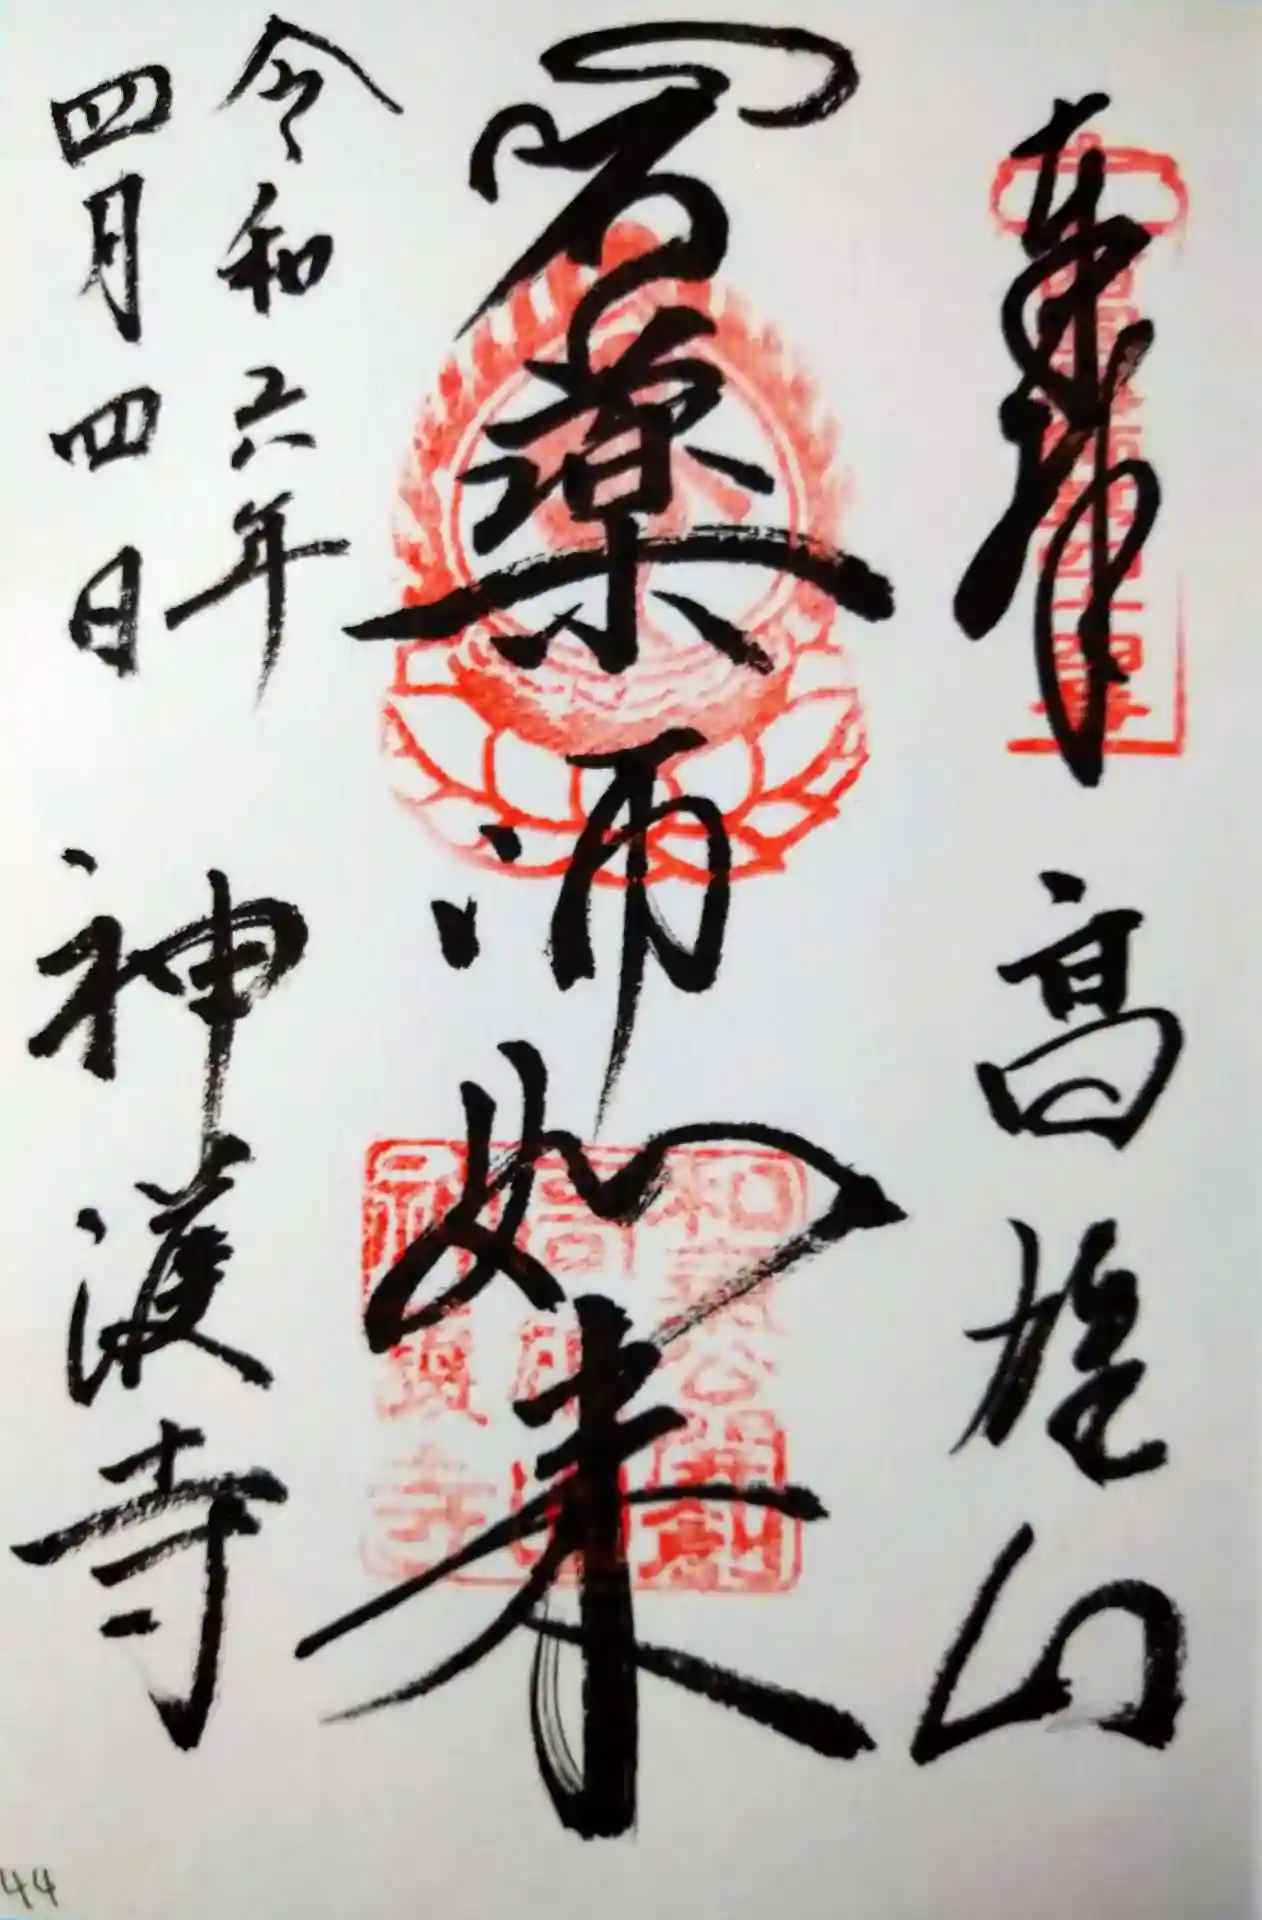 奉拝 高雄山
薬師如来
令和六年
四月四日
神護寺
和氣公開創
高雄山
神護寺
44